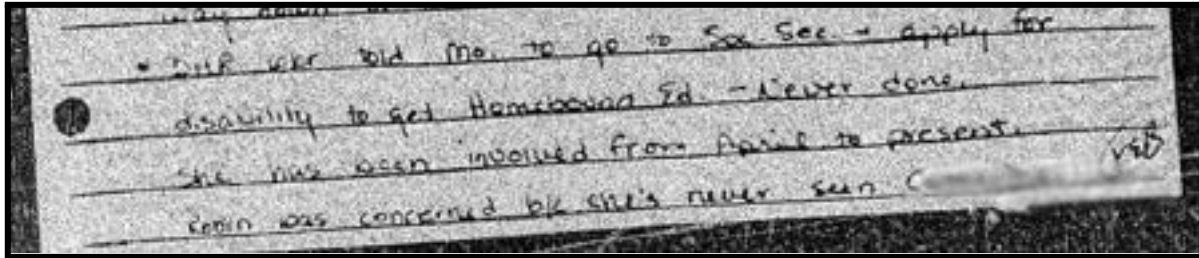 way down
• DHR wkr told Mo. to go to Soc Sec. + apply for
disability to get Homebound Ed. - Never done.
She has been involved from April to present.
Robin was concerned b/c she's never seen